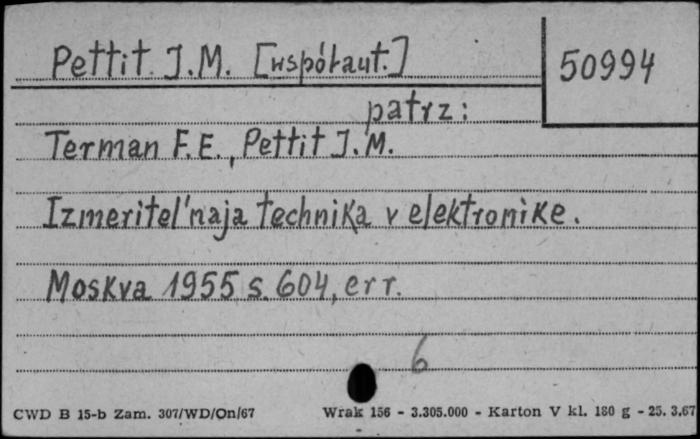 Pettit J.M. [współaut.]
50994
patrz:
Terman F.E., Pettit J.M.
Izmeritel'naja technika v elektronike.
Moskva 1955 s. 604, err.
6
CWD B 15-b Zam. 307/WD/On/67 Wrak 156 - 3.305.000 - Karton V kl. 180 g - 25. 3.67